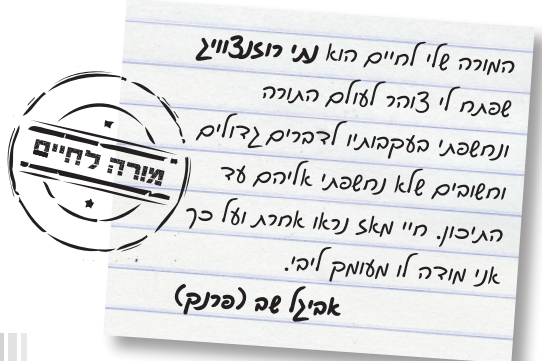 המורה שלי לחיים הוא נתי רוזנצוויג
שפתח לי צוהר לעולם התורה
ונחשפתי בעקבותיו לדברים גדולים
וחשובים שלא נחשפתי אליהם עד
התיכון. חיי מאז נראו אחרת ועל כך
אני מודה לו מעומק ליבי.
אביגל שב (פרנק)
מורה לחיים